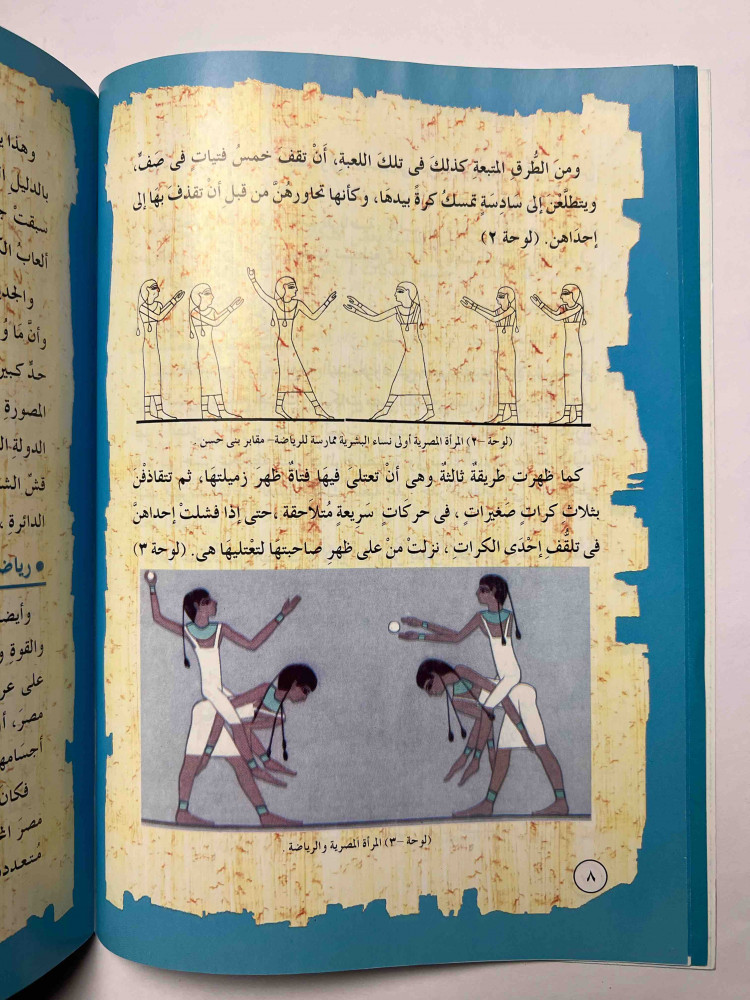 ومن الطُّرقِ المتبعةِ كذلكَ فى تلكَ اللعبةِ، أَنْ تقفَ خمسُ فتيات فى صَفٍّ،
ويتطلَّعْنَ إلى سادِسَةٍ تمسكُ كرةً بيدهَا، وكأنها تحاورهُنَّ من قبل أنْ تقذفَ بهَا إلى
إحدَاهن. (لوحة ٢)
(لوحة -٢) المرأة المصرية أولى نساء البشرية ممارسة للرياضة- مقابر بنى حسن .
كما ظهرت طريقةٌ ثالثةٌ وهى أنْ تعتلىَ فيهَا فتاةٌ ظهرَ زميلتهَا، ثم تتقاذفْنَ
بثلاث كراتٍ صَغيرَاتٍ ، فى حركَاتٍ سَريعةٍ مُتلاَحقة ،حتى إذا فشلتْ إحداهنَّ
فى تلقُّفِ إحْدَى الكراتِ ، نزلتْ منْ على ظهرِ صاحبتهَا لتعْتليهَا هى. (لوحة ٣)
(لوحة -٣) المرأة المصرية والرياضة .
٨
وهذا
بالدليل
سبقتْ
ألعابُ
حدِّ كبير
المصورةِ
قشِّ
الدائرةِ ،
• رياض
وأيض
والقوةِ
على
مصرَ،
أجسامه
فكان
مصرَ
مُتعدد